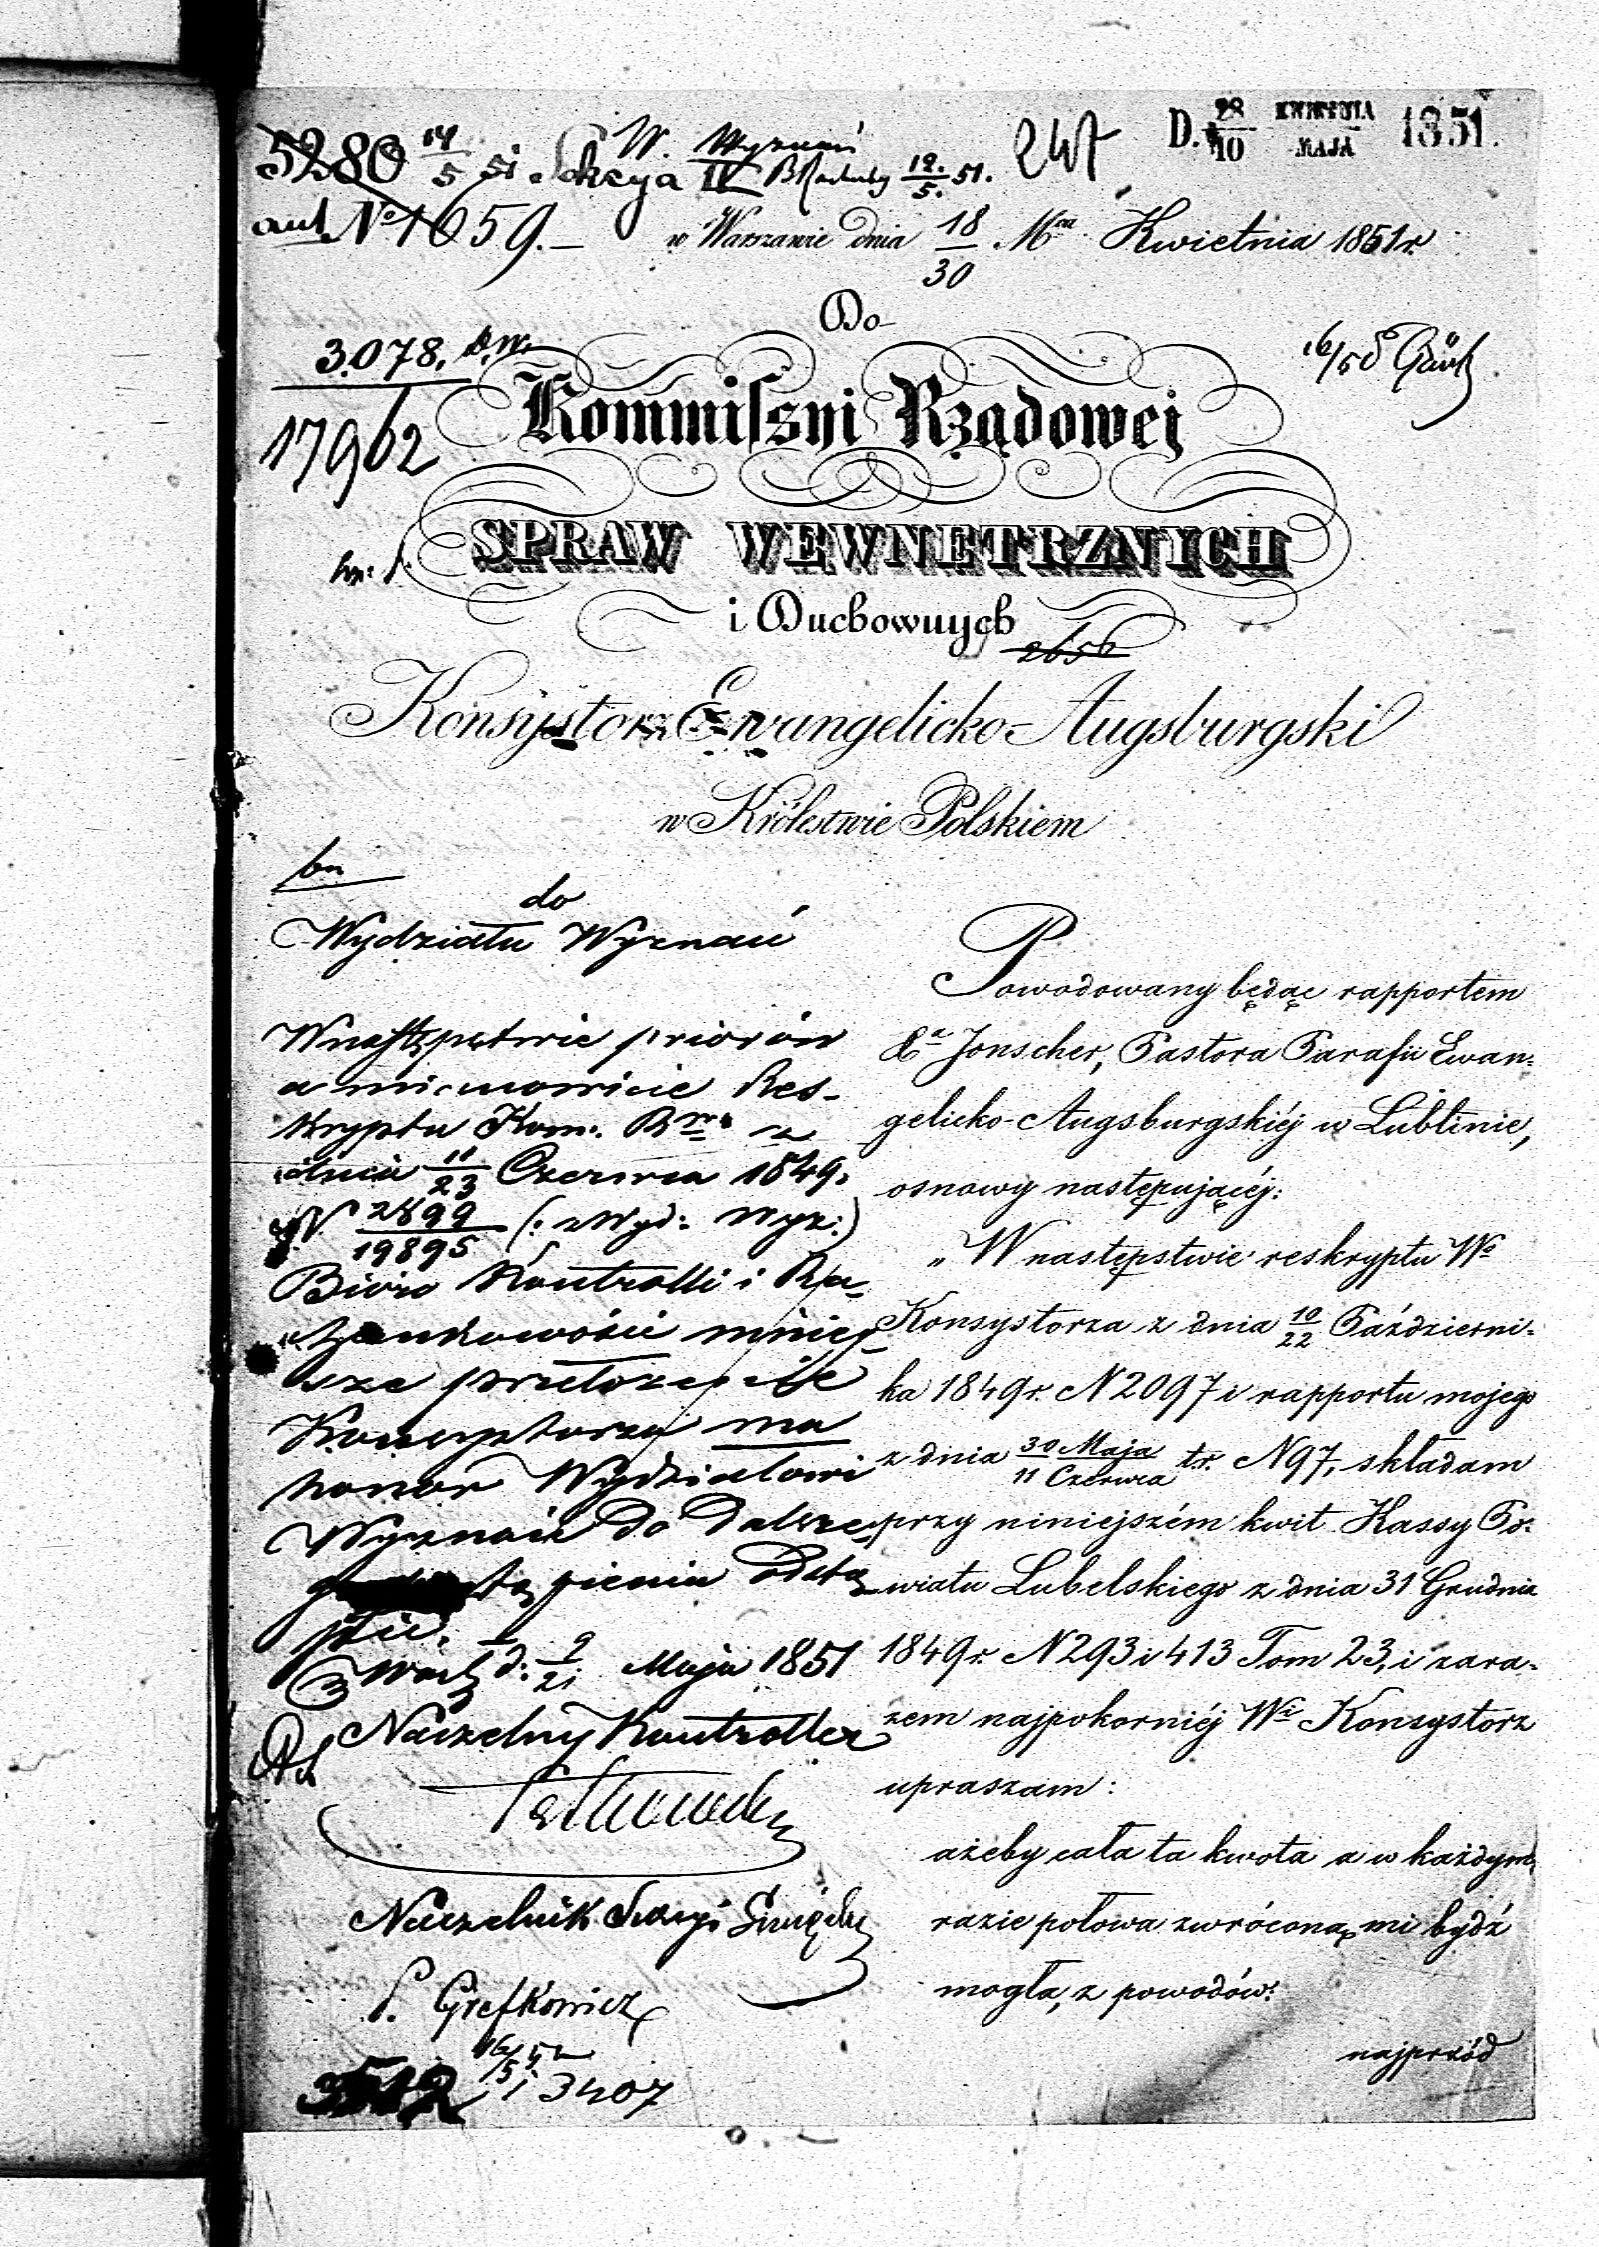 D. 28/10 KWIETNIA/MAJA 1851.
5280 14/5 51 Sekcya IV 12./5. 51. 247
W. Wyznań
No 1659.—
w Warszawie dnia 18/30 Mca Kwietnia 1851 r.
Do
3078. D.W.
17962
Kommissyi Rządowej
SPRAW WEWNĘTRZNYCH
i Duchownych
2656
Konsystorz Ewangelicko-Augsburgski
w Królestwie Polskiem
do
Wydziału Wyznań
W następstwie priorów
a mianowicie Res-
kryptu Kom. Rz.
dnia 11/23 Czerwca 1849.
N 2899/19895 (: z Wyd: Wyz:)
Biuro Kontrolli i Ra-
chunkowości niniej-
sze przełożenie
Konsystorza ma
honor Wydziałowi
Wyznań do dalsze-
go
d: 9/21 Maja 1851
Naczelny Kontroller
Naczelnik Sekcyi
Grefkowicz
3407
Powodowany będąc rapportem
Xa Jonscher, Pastora Parafii Ewan-
gelicko-Augsburgskiéj w Lublinie,
osnowy następującéj:
„W następstwie reskryptu Wo
Konsystorza z dnia 10/22 Październi-
ka 1849 r. N 2097 i rapportu mojego
z dnia 30 Maja/11 Czerwca t.r. N 97, składam
przy niniejszém kwit Kassy Po-
wiatu Lubelskiego z dnia 31 Grudnia
1849 r. N 293 i 413 Tom 23, i zara-
zem najpokorniéj Wi Konsystorz
upraszam:
ażeby cała ta kwota a w każdym
razie połowa zwróconą mi bydź
mogła, z powodów:
najprzód